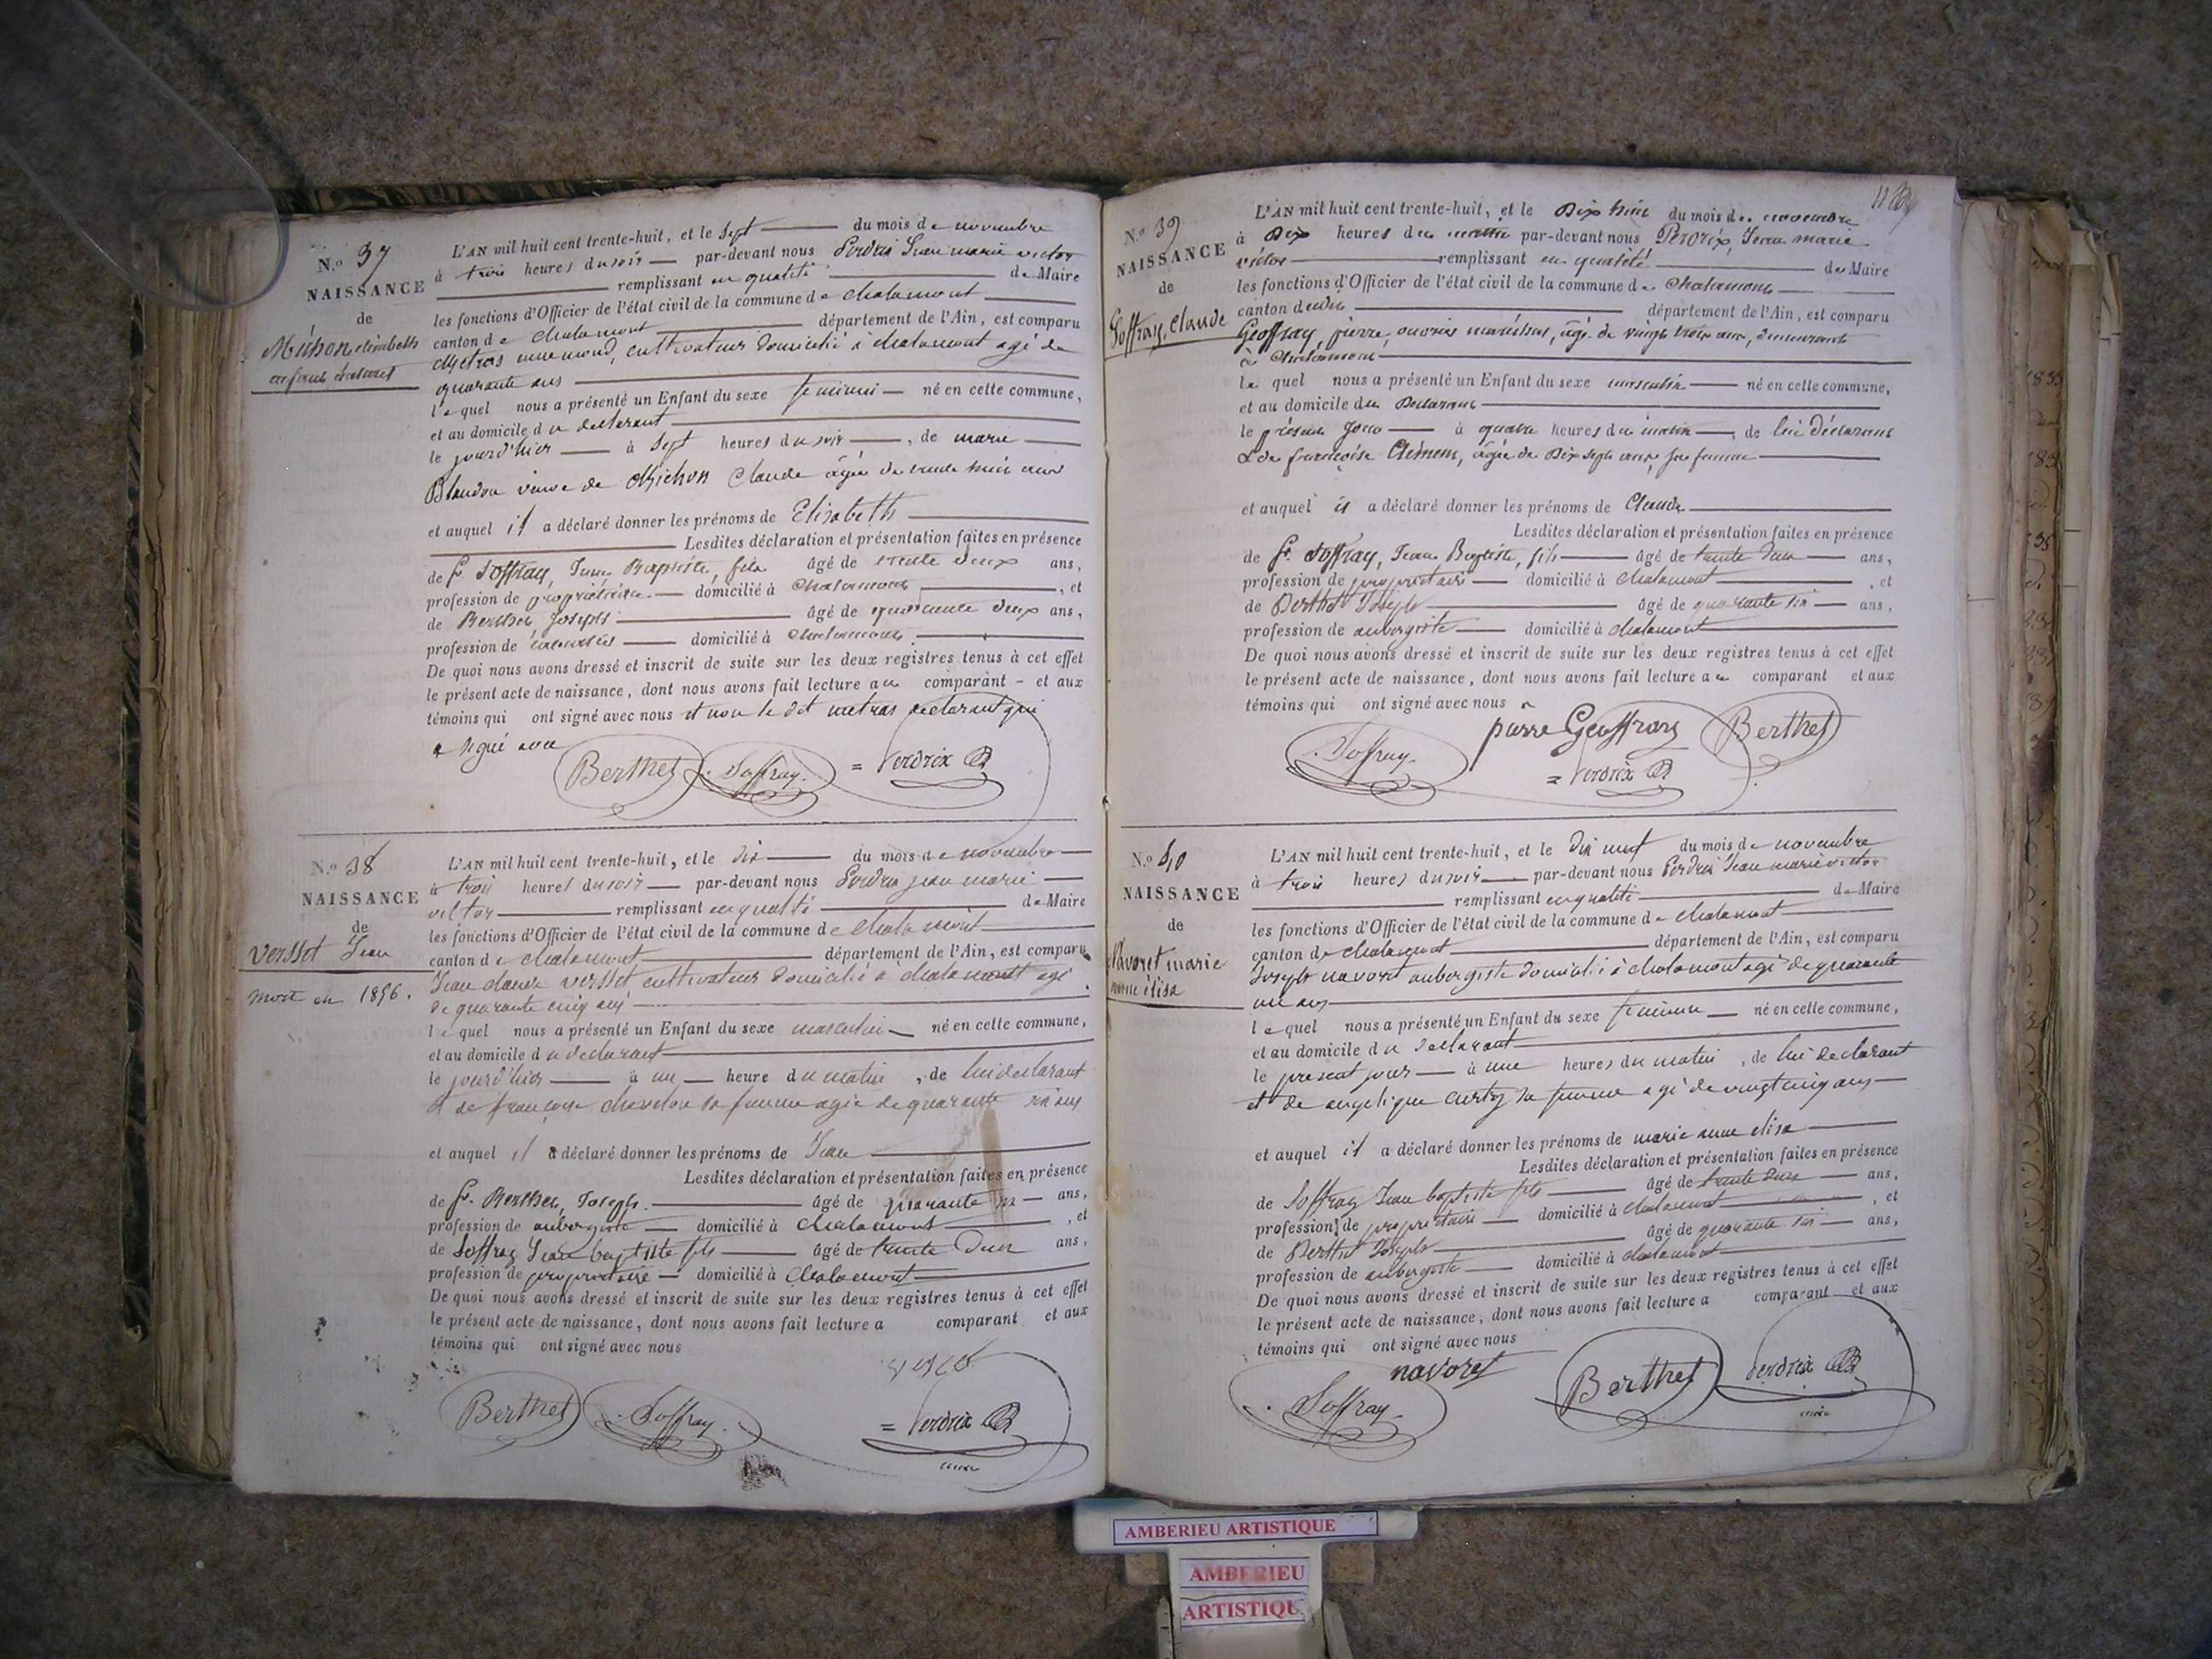 N.o 37
NAISSANCE
de
Michon elisabeth
enfant naturel
L'AN mil huit cent trente-huit, et le sept du mois de novembre
à trois heures du soir par-devant nous Perdrix Jean marie victor
remplissant en qualité de Maire
les fonctions d'Officier de l'état civil de la commune de chalamont
canton de chalamont département de l'Ain, est comparu
Metras ennemond, cultivateur domicilié à chalamont agé de
quarante ans
lequel nous a présenté un Enfant du sexe feminin né en cette commune,
et au domicile du declarant
le jourd'hier à sept heures du soir, de marie
Blandon veuve de Michon Claude agée de trente huit ans
et auquel il a déclaré donner les prénoms de Elisabeth
Lesdites déclaration et présentation faites en présence
de Soffray, Jean Baptiste, fils âgé de trente deux ans,
profession de propriétaire domicilié à Chalamont, et
de Berthet Joseph âgé de quarante deux ans,
profession de domicilié à Chalamont
De quoi nous avons dressé et inscrit de suite sur les deux registres tenus à cet effet
le présent acte de naissance, dont nous avons fait lecture au comparant - et aux
témoins qui ont signé avec nous et non le dit metras declarant qui
Berthet Soffray = Perdrix
N.o 38
NAISSANCE
de
Versset Jean
mort en 1896.
L'AN mil huit cent trente-huit, et le dix du mois de novembre
à trois heures du soir par-devant nous Perdrix jean marie
victor remplissant en qualité de Maire
les fonctions d'Officier de l'état civil de la commune de chalamont
canton de chalamont département de l'Ain, est comparu
Jean versset cultivateur domicilié à chalamont agé
de quarante cinq ans
lequel nous a présenté un Enfant du sexe masculin né en cette commune,
et au domicile du declarant
le jourd'hier à un heure du matin, de lui declarant
et de françoise sa femme agée de quarante six ans
et auquel il a déclaré donner les prénoms de Jean
Lesdites déclaration et présentation faites en présence
de Berthet, Joseph. âgé de quarante six ans,
profession de aubergiste domicilié à chalamont, et
de Soffray Jean baptiste fils âgé de trente deux ans,
profession de propriétaire domicilié à Chalamont
De quoi nous avons dressé et inscrit de suite sur les deux registres tenus à cet effet
le présent acte de naissance, dont nous avons fait lecture a comparant et aux
témoins qui ont signé avec nous
Berthet Soffray = Perdrix
maire
N.o 39
NAISSANCE
de
Soffray, Claude
L'AN mil huit cent trente-huit, et le dix huit du mois de novembre
à dix heures du matin par-devant nous Perdrix, Jean marie
victor remplissant en qualité de Maire
les fonctions d'Officier de l'état civil de la commune de Chalamont
canton dudit département de l'Ain, est comparu
Geoffray, pierre, ouvrier maréchal, âgé de vingt trois ans, demeurant
à Chalamont
lequel nous a présenté un Enfant du sexe masculin né en cette commune,
et au domicile du déclarant
le présent jour à quatre heures du matin, de lui déclarant
& de françoise Clément, âgée de dix sept ans, sa femme
et auquel il a déclaré donner les prénoms de Claude
Lesdites déclaration et présentation faites en présence
de Soffray, Jean Baptiste, fils âgé de trente deux ans,
profession de propriétaire domicilié à chalamont, et
de Berthet Joseph âgé de quarante six ans,
profession de aubergiste domicilié à chalamont
De quoi nous avons dressé et inscrit de suite sur les deux registres tenus à cet effet
le présent acte de naissance, dont nous avons fait lecture au comparant et aux
témoins qui ont signé avec nous
Soffray pierre Geoffray Berthet
= Perdrix
N.o 40
NAISSANCE
de
Navoret marie
anne élisa
L'AN mil huit cent trente-huit, et le dix neuf du mois de novembre
à trois heures du soir par-devant nous Perdrix Jean marie victor
remplissant en qualité de Maire
les fonctions d'Officier de l'état civil de la commune de chalamont
canton de chalamont département de l'Ain, est comparu
Joseph navoret aubergiste domicilié à chalamont agé de quarante
un ans
lequel nous a présenté un Enfant du sexe feminin né en cette commune,
et au domicile du declarant
le present jour à une heures du matin, de lui declarant
et de angelique curty sa femme agé de vingt cinq ans
et auquel il a déclaré donner les prénoms de marie anne elisa
Lesdites déclaration et présentation faites en présence
de Soffray Jean baptiste fils âgé de trente deux ans,
profession de propriétaire domicilié à chalamont, et
de Berthet Joseph âgé de quarante six ans,
profession de aubergiste domicilié à chalamont
De quoi nous avons dressé et inscrit de suite sur les deux registres tenus à cet effet
le présent acte de naissance, dont nous avons fait lecture a comparant et aux
témoins qui ont signé avec nous
navoret
Soffray Berthet Perdrix
maire
AMBERIEU ARTISTIQUE
AMBERIEU
ARTISTIQUE